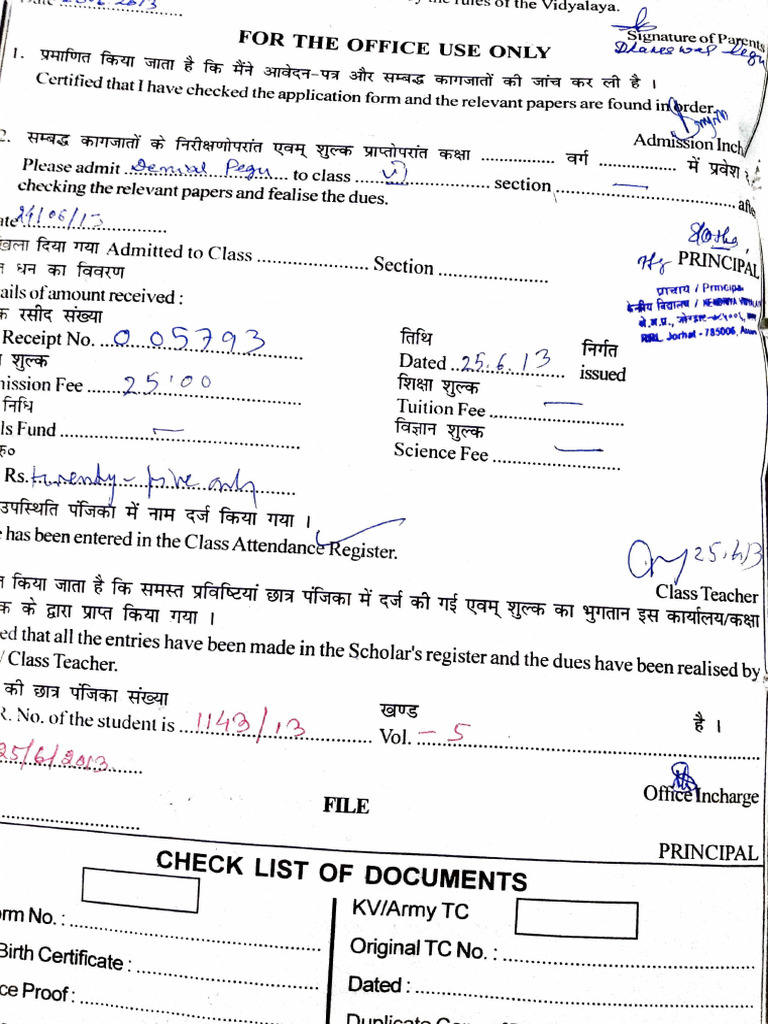 by the rules of the Vidyalaya.
Signature of Parents
Dhaneswar Pegu
FOR THE OFFICE USE ONLY
1. प्रमाणित किया जाता है कि मैंने आवेदन-पत्र और सम्बद्ध कागजातों की जांच कर ली है ।
Certified that I have checked the application form and the relevant papers are found in order.
Admission Inch
2. सम्बद्ध कागजातों के निरीक्षणोपरांत एवम् शुल्क प्राप्तोपरांत कक्षा ................ वर्ग ................ में प्रवेश
Please admit Pegu to class VI section — afte
checking the relevant papers and fealise the dues.
ate 24/06/13
खिला दिया गया Admitted to Class ...................... Section ......................
PRINCIPAL
त धन का विवरण
ails of amount received :
प्राचार्य / Principal
केन्द्रीय विद्यालय / KENDRIYA
RRL, Jorhat - 785006,
क रसीद संख्या
तिथि निर्गत
Receipt No. 005793 Dated 25.6.13 issued
शुल्क शिक्षा शुल्क
ission Fee 25.00 Tuition Fee —
निधि विज्ञान शुल्क
ls Fund — Science Fee —
रु०
Rs. twenty-five only
उपस्थिति पंजिका में नाम दर्ज किया गया ।
e has been entered in the Class Attendance Register.
Class Teacher
त किया जाता है कि समस्त प्रविष्टियां छात्र पंजिका में दर्ज की गई एवम् शुल्क का भुगतान इस कार्यालय/कक्षा
क के द्वारा प्राप्त किया गया ।
ed that all the entries have been made in the Scholar's register and the dues have been realised by
/ Class Teacher.
की छात्र पंजिका संख्या खण्ड है ।
R. No. of the student is 1143/13 Vol. - 5
25/6/2013
Office Incharge
FILE
PRINCIPAL
CHECK LIST OF DOCUMENTS
KV/Army TC
orm No. :
Original TC No. :
Birth Certificate :
Dated :
ce Proof :